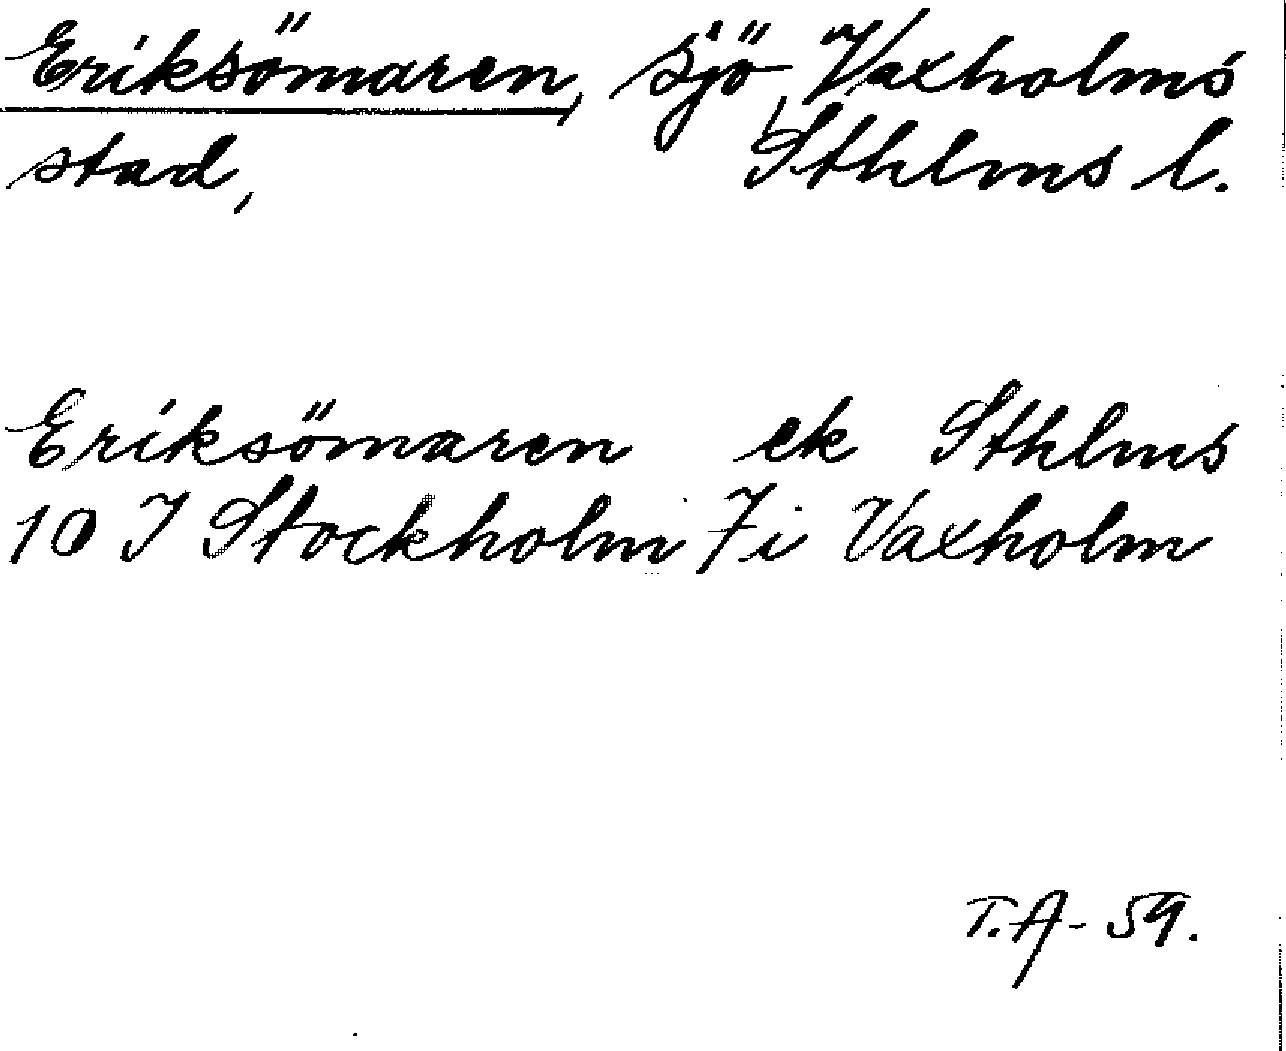 Eriksömaren, sjö, Vaxholms
stad, Sthlms l.
Eriksömaren ek Sthlms
10 I Stockholm 7 i Vaxholm
T.A-59.